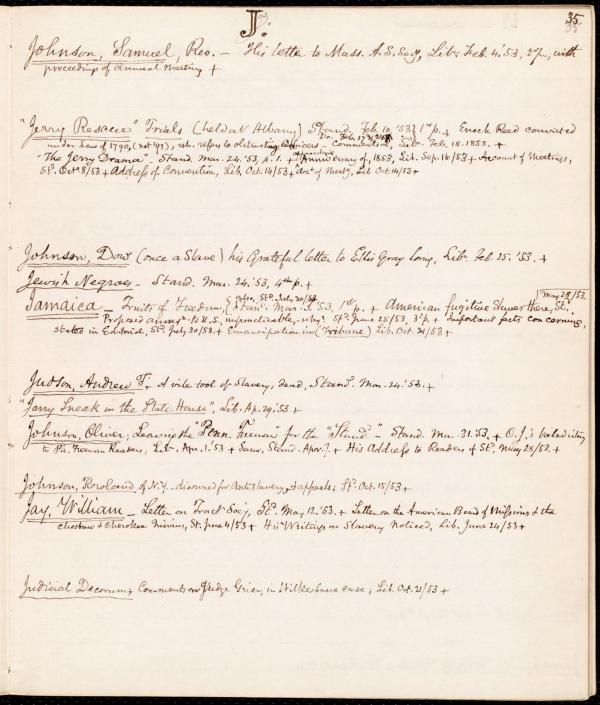 J.
35
Johnson, Samuel, Rev. – His letter to Mass. A.S. Socy, Libr. Feb. 4. '53, 2d p., with
proceedings of annual meeting +
"Jerry Rescue" Trials (held at Albany) Stand. Feb. 10. '53, 1st p. + Enoch Reed convicted
under Law of 1790, (not '93), wh. refers to obstructing officers – Libr. Feb. 18. 1853. +
"The Jerry Drama". Stand. Mar. 24. '53, p. 1. + Anniversary of, 1853, Lib. Sep. 16/53 + Account of Meetings,
St. Oct 8/53 + Address of Convention, Lib. Oct. 14/53 + doc. of Meetg, Lib. Oct. 14/53 +
Johnson, Dow (once a Slave) his Grateful letter to Ellis Gray Loring, Libr. Feb. 25. '53. +
Jewish Negroes – Stand. Mar. 24. '53, 4th p. +
May 28/53
also, St. July 30/53
Jamaica – Fruits of Freedom, Stan. Mar. 3. '53, 1st p. + American fugitive slaves there, St.
Proposed annexn. to U.S., impracticable, why? St. June 25/53, 3d p. + Important facts concerning,
stated in Editorial, St. July 30/53 + Emancipation in (Tribune) Lib. Oct. 21/53 +
Judson, Andrew T. A vile tool of Slavery, dead, Stand. Mar. 24. '53. +
"Jerry Sneak in the State House", Lib. Ap. 29. '53. +
Johnson, Oliver; Leaving the "Penn. Freeman" for the "Stand." – Stand. Mar. 31. '53. + O.J.'s Valedictory
to Pa. Freeman Readers, Libr. Apr. 1. '53 + Same, Stand. Apr. 7. + His Address to Readers of St. May 28/53. +
Johnson, Rowland of N.Y. disowned for Antislavery, + appeals; St. Oct. 15/53 +
Jay, William – Letter on Tract Socy, St. May 12. '53. + Letter on the American Board of Missions & the
Choctaw & Cherokee Indians, St. June 4/53 + His Writings on Slavery Noticed, Lib. June 24/53 +
Judicial Decorum; Comments on Judge Grier, in Wilkesbarre case, Lib. Oct. 21/53 +